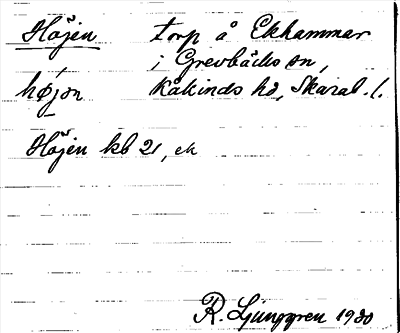 Höjen torp å Ekhammar
i Grevbäcks sn,
hǿjən Kåkinds hd, Skarab. l.
Höjen kb 21, ek
R. Ljunggren 1930